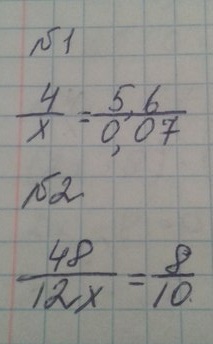 №1
4/x = 5,6/0,07
№2
48/12x = 8/10